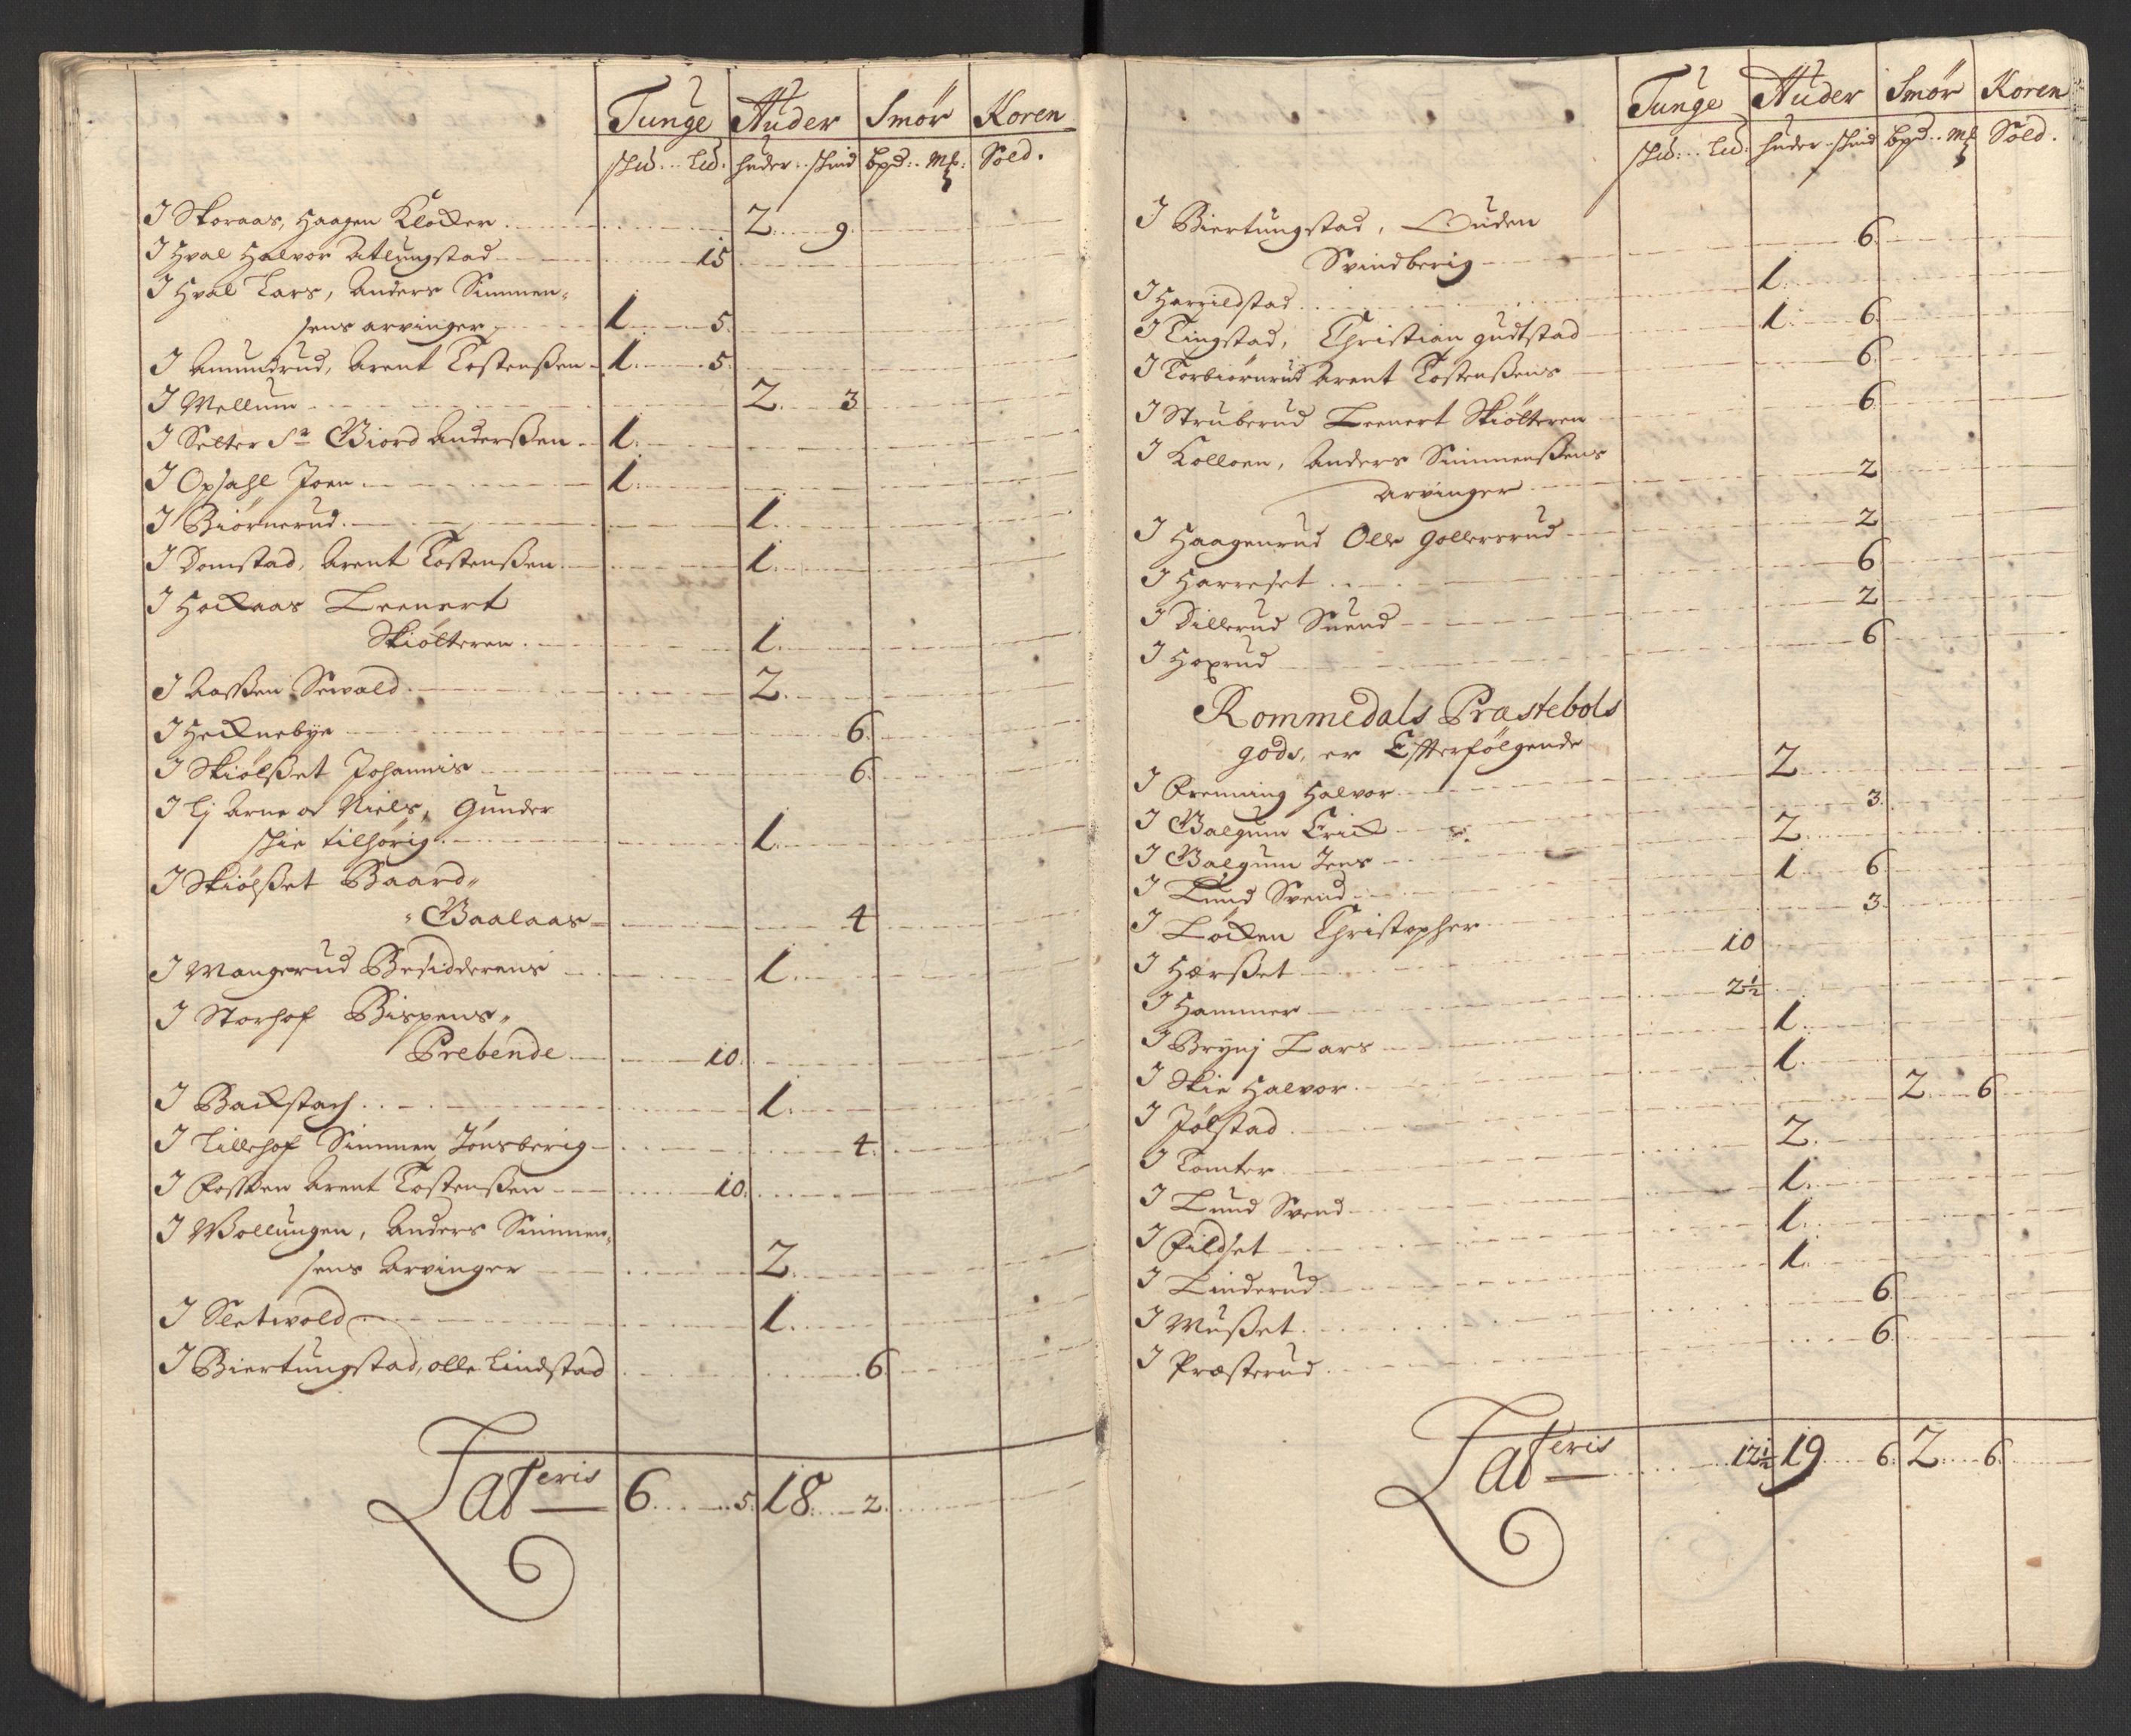 Tunge Huder Smør Koren
skũ: .. Lũ: huder .. skind bpd: .. Mk: Sold.
I Skoraas, Haagen Klocker 2 9
I Hval Halvor Atlungstad 15
I Hval Lars, Anders Simmen-
sens arvinger 1 5
I Amundrud, Arent Tostenßen 1 5
I Mellum 2 3
I Selter Sr Giord Anderßen 1
I Opsahl Joen 1
I Biørnerud 1
I Domstad, Arent Tostenßen 1
I Hockaas Leenert
Skiølteren 1
I Aaßen Sewald 2
I Hecknebye 6
I Skiølßet Johannis 6
I Lj Arne og Niels, Gunder
skie tilhørig 1
I Skiølßet Baard
Gaalaas 4
I Mangerud Besidderens 1
I Storhof Bispens
Prebende 10
I Backstach 1
I Lillehof Simmen Tønsberig 4
I Foßen Arent Tostenßen 10
I Wollungen, Anders Simmen-
sens Arvinger 2
I Sletwold 1
I Biertungstad, olle Lindstad 6
Lateris 6 5 18 2
Tunge Huder Smør Koren
skũ: .. Lũ: huder .. skind bpd: .. Mk Sold.
I Biertungstad, Ouden
Svindberig 6
I Harrildstad 1
I Tingstad, Christian gudtstad 1 6
I Torbiørnrud Arent Tostenßens 6
I Struberud Leenert Skiølteren 6
I Kolloen, Anders Simmenßens
Arvinger 2
I Haagenrud Olle Gollersrud 2
I Harreset 6
I Dillerud Suend 2
I Hoxrud 6
Rommedals Præstebols
gods, er Efterfølgende
I Frenning Halvor 2
I Galgum Erick 3
I Galgum Jens 2
I Lund Svend 1 6
I Løcken Christopher 3
I Hærßet 10
I Hammer 2½
I Brynj Lars 1
I Skie Halvor 1
I Jølstad 2 6
I Tomter 2
I Lund Svend 1
I Fildset 1
I Linderud 1
I Mußet 6
I Præsterud 6
Lateris 12½ 19 6 2 6